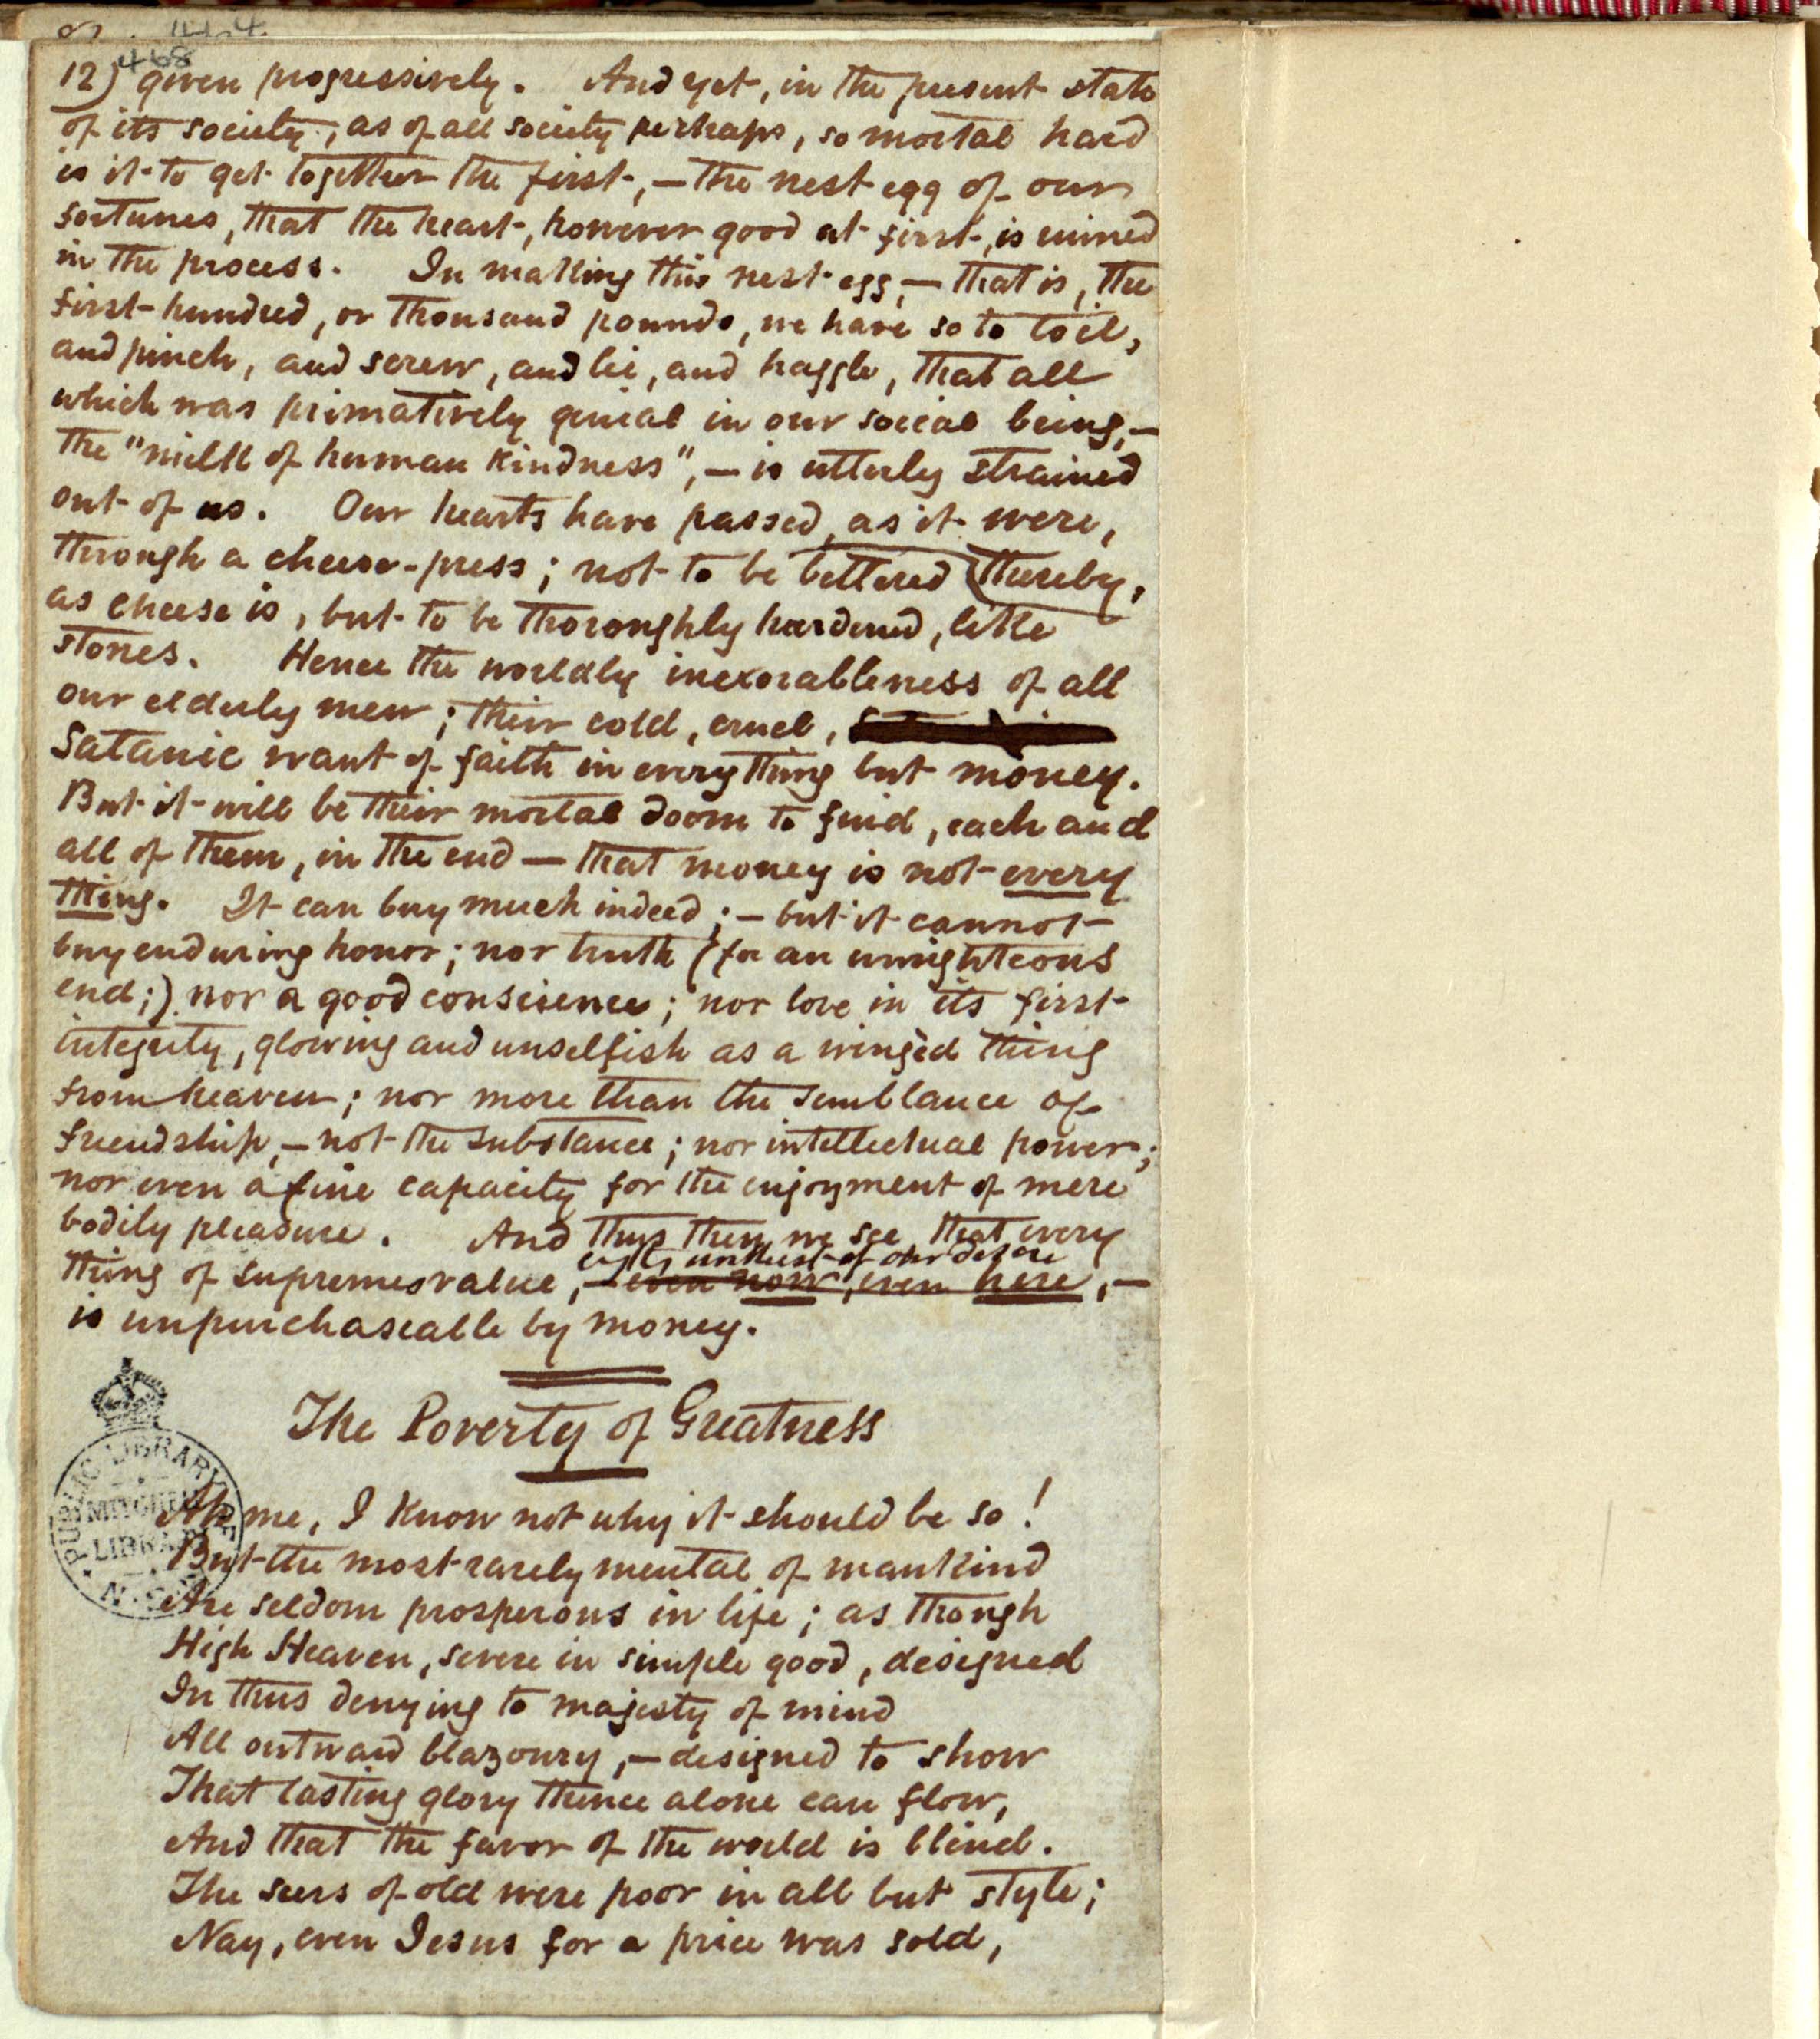 468
12) given progressively. And yet, in the present state
of its society, as of all society perhaps, so mortal hard
is it to get together the first,—the nest egg of our
fortunes, that the heart, however good at first, is ruined
in the process. In making this nest egg,—that is, the
first hundred, or thousand pounds, we have so to toil,
and pinch, and screw, and lie, and haggle, that all
which was primatively genial in our social being,—
the "milk of human kindness",—is utterly strained
out of us. Our hearts have passed, as it were,
through a cheese-press; not to be bettered thereby,
as cheese is, but to be thoroughly hardened, like
stones. Hence the worldly inexorableness of all
our elderly men; their cold, cruel,
Satanic want of faith in every thing but money.
But it will be their mortal doom to find, each and
all of them, in the end—that money is not every
thing. It can buy much indeed;—but it cannot
buy enduring honor; nor truth (for an unrighteous
end;) nor a good conscience; nor love in its first
integrity, glowing and unselfish as a wingèd thing
from heaven; nor more than the semblance of
friendship,—not the substance; nor intellectual power;
nor even a fine capacity for the enjoyment of mere
bodily pleasure. And thus then we see that every
of our desire
thing of supreme value,—even now, even here,—
is unpurchaseable by money.
The Poverty of Greatness
Ah me, I know not why it should be so!
But the most rarely mental of mankind
Are seldom prosperous in life; as though
High Heaven, severe in simple good, designed
In thus denying to majesty of mind
All outward blazonry,—designed to show
That lasting glory thence alone can flow,
And that the favor of the world is blind.
The seers of old were poor in all but style;
Nay, even Jesus for a price was sold,
PUBLIC LIBRARY
MITCHELL
LIBRARY
N.S.W.